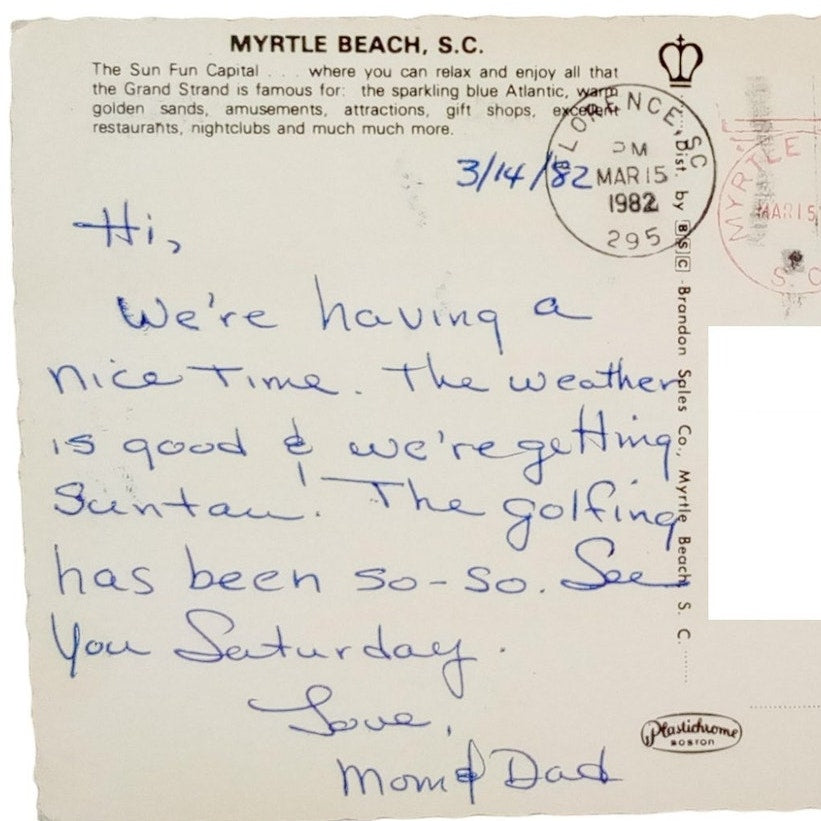 MYRTLE BEACH, S.C.
The Sun Fun Capital . . . where you can relax and enjoy all that
the Grand Strand is famous for: the sparkling blue Atlantic, warm
golden sands, amusements, attractions, gift shops, excellent
restaurants, nightclubs and much much more.
3/14/82
FLORENCE, SC
PM
MAR 15
1982
295
MYRTLE
MAR 15
S. C
Dist. by BSC - Brandon Sales Co., Myrtle Beach, S. C.
Hi,
We're having a
nice Time. The weather
is good & we're getting
Suntan! The golfing
has been so-so. See
You Saturday.
Love,
Mom & Dad
Plastichrome
BOSTON